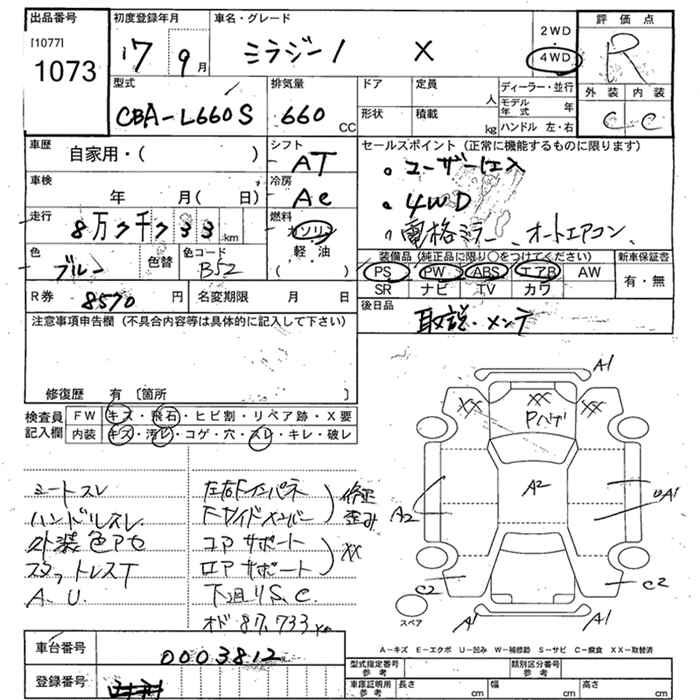 出品番号 初度登録年月 車名・グレード 2WD 評価点
[1077]
1073 17 9月 ミラジーノ X 4WD R
型式 排気量 ドア 定員 人 ディーラー・並行 外装 内装
CBA-L660S 660 CC 形状 積載 kg モデル年式 年 C C
ハンドル 左・右
車歴 シフト セールスポイント(正常に機能するものに限ります)
自家用・( ) AT ・ユーザー仕入
車検 冷房 ・4WD
年 月( 日) AC ・電格ミラー、オートエアコン
走行 燃料
8万7千733km ガソリン
色 色替 色コード 軽油 装備品(純正品に限り○をつけてください) 新車保証書
ブルー B52 ( ) PS PW ABS エアB AW 有・無
SR ナビ TV カワ
R券 8570円 名変期限 月 日 後日品
注意事項申告欄(不具合内容等は具体的に記入して下さい) 取説・メンテ
修復歴 有〔箇所 〕
検査員 FW キズ・飛石・ヒビ割・リペア跡・X要
記入欄 内装 キズ・汚レ・コゲ・穴・スレ・キレ・破レ
A1
XX XX XX
Pベゲ
A2
A2 A1
C2 C2
A1 A1
スペア
シートスレ 左右Fインパネ
ハンドルスレ Fサイドメンバー 修正 歪み
外装色アセ コアサポート
スタットレスT ロアサポート XX
A.U. 下廻りS.C.
オド 87,733km
A-キズ E-エクボ U-凹み W-補修跡 S-サビ C-腐食 XX-交替済
車台番号 0003812 型式指定番号 参考 類別区分番号 参考
登録番号 車庫証明用 参考 長さ cm 幅 cm 高さ cm